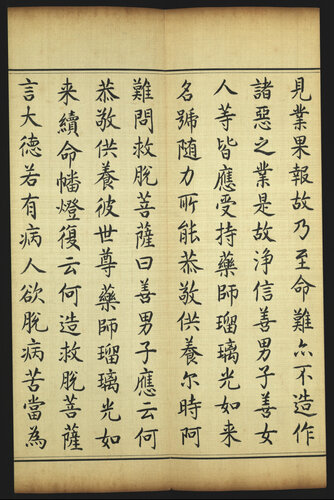 見業果報故乃至命難亦不造作
諸惡之業是故淨信善男子善女
人等皆應受持藥師瑠璃光如来
名號随力所能恭敬供養尔時阿
難問救脫菩薩曰善男子應云何
恭敬供養彼世尊藥師瑠璃光如
来續命幡燈復云何造救脫菩薩
言大德若有病人欲脫病苦當為